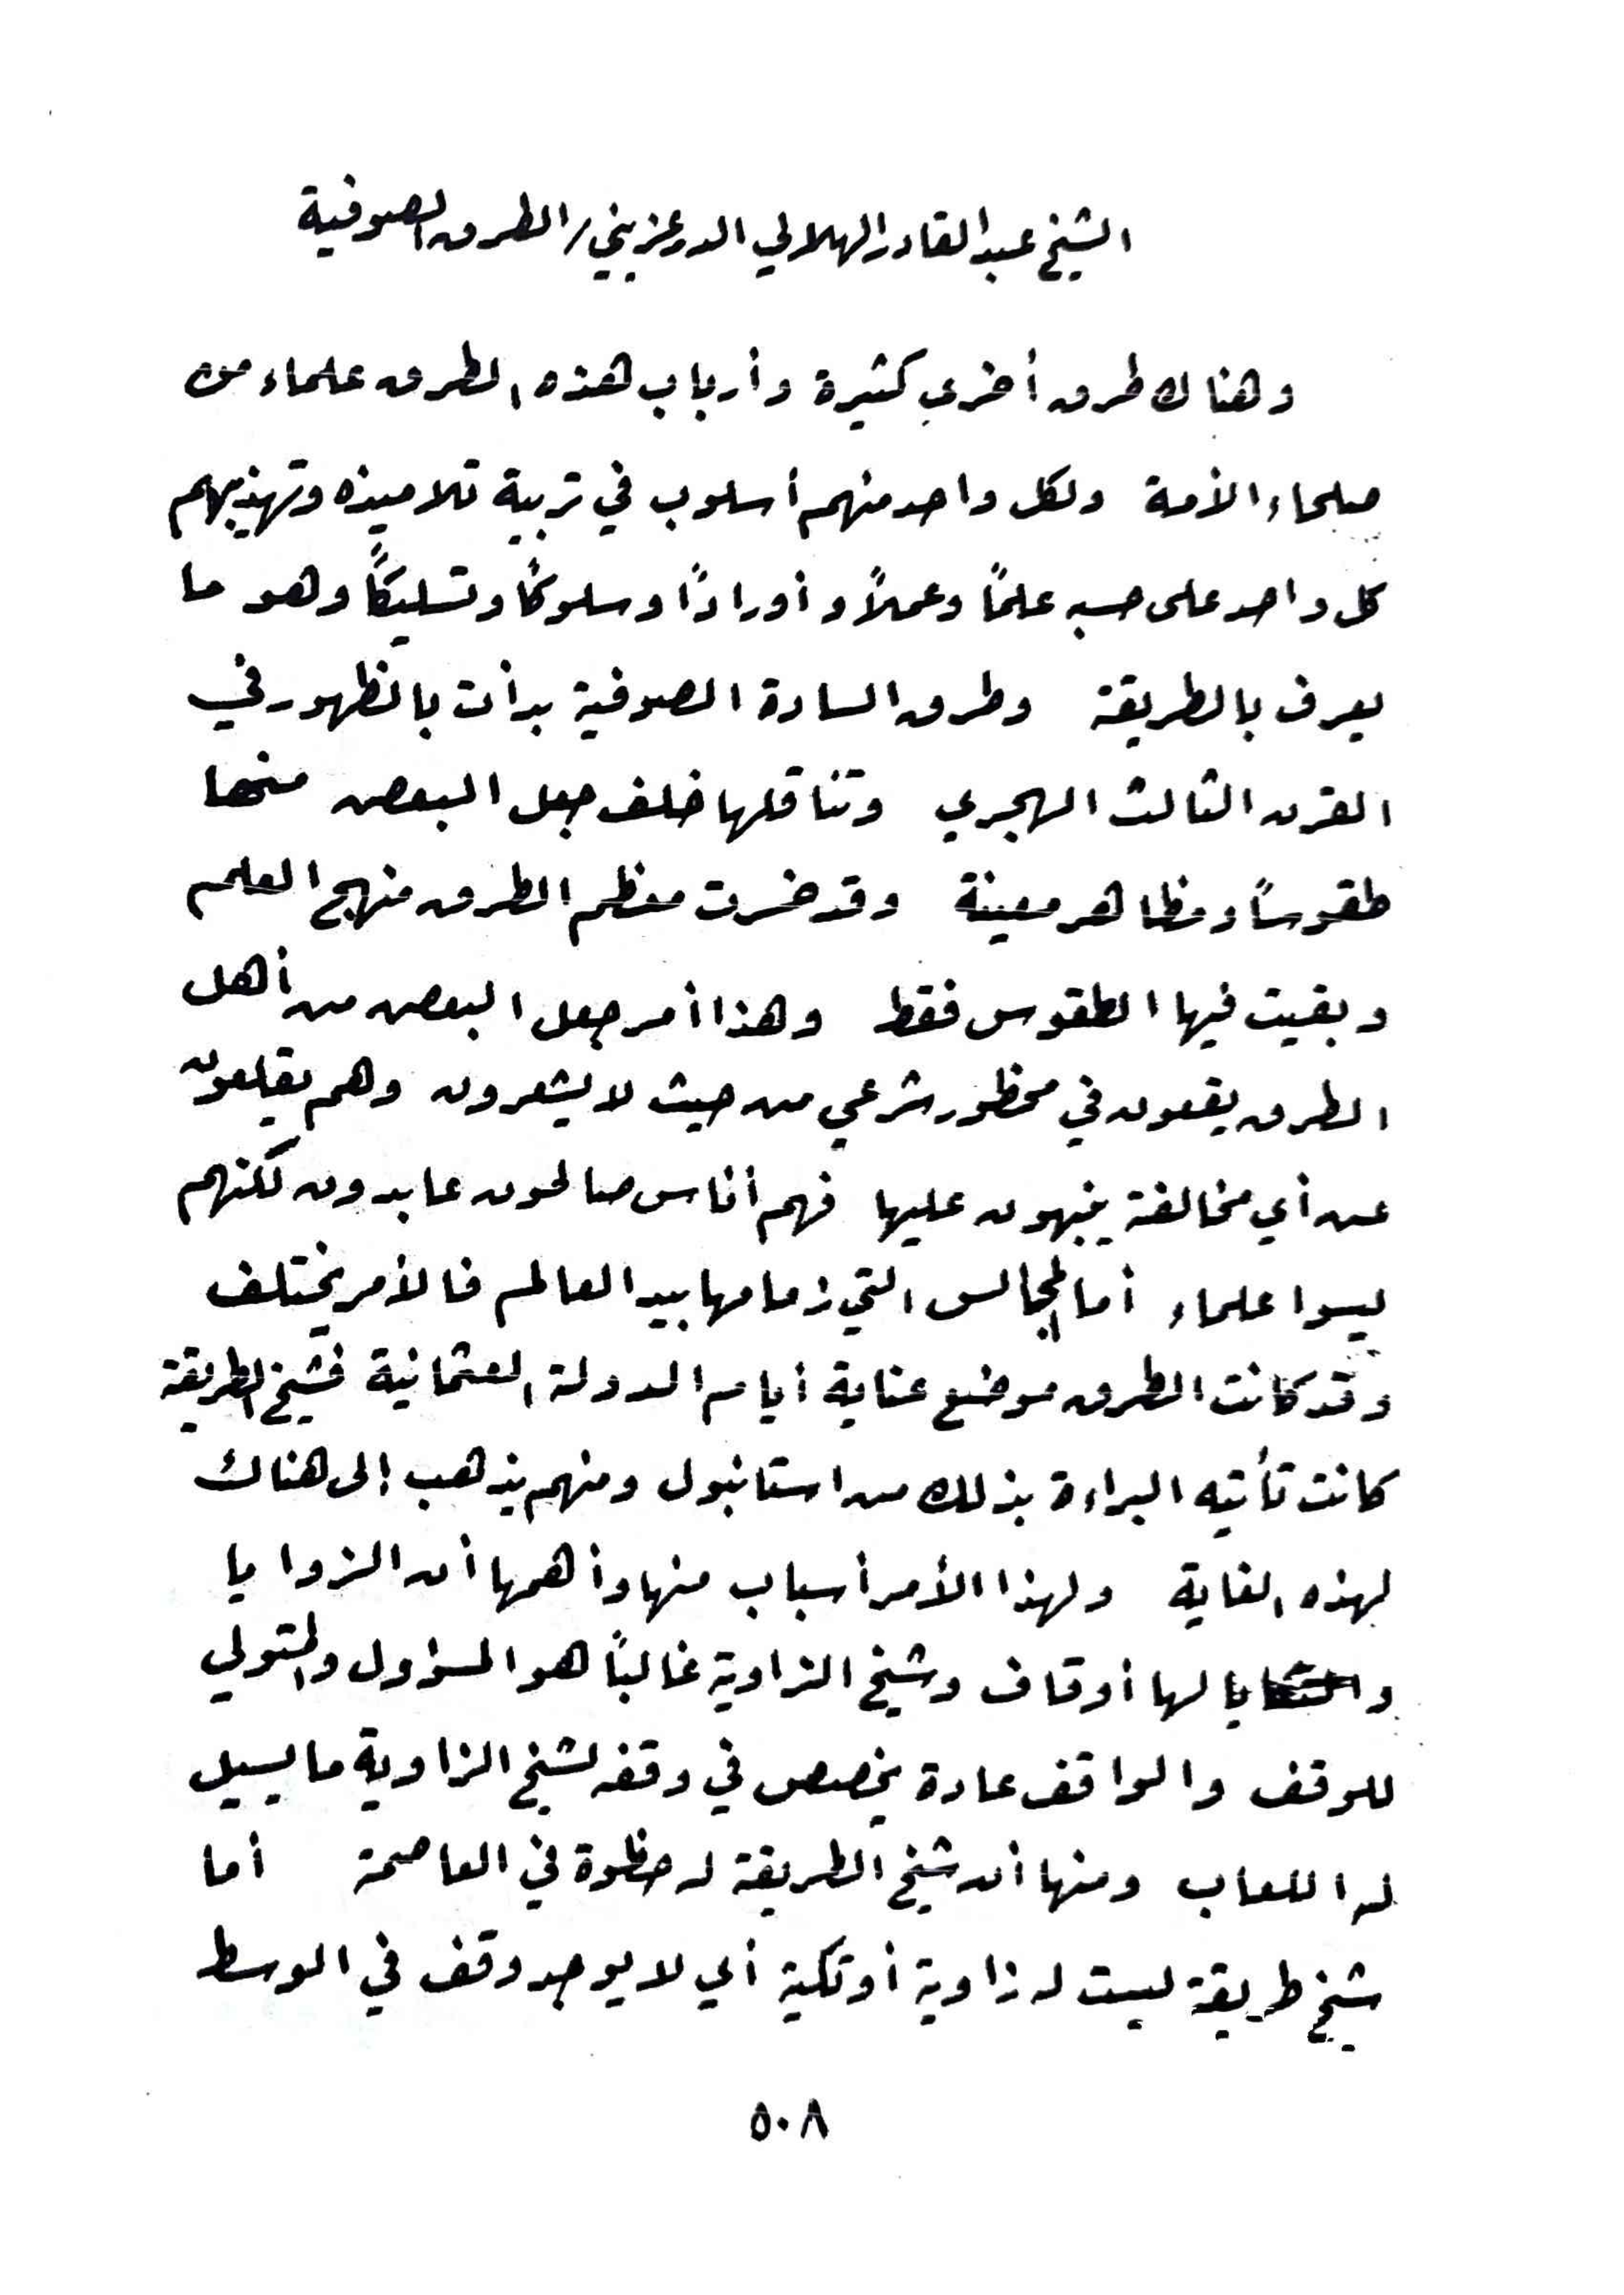 الشيخ عبد القادر الهلالي الدرعزيني / الطرق الصوفية
وهناك طرق أخرى كثيرة وأرباب هذه الطرق علماء من
صلحاء الأمة ولكل واحد منهم أسلوب في تربية تلاميذه وتهذيبهم
كل واحد على حسبه علماً وعملاً وأوراداً وسلوكاً وتسليكاً وهو ما
يعرف بالطريقة وطرق السادة الصوفية بدأت بالظهور في
القرن الثالث الهجري وتناقلها خلف جعل البعض منها
طقوساً ومظاهر معينة وقد خسرت معظم الطرق منهج العلم
وبقيت فيها الطقوس فقط وهذا أمر جعل البعض من أهل
الطرق يقعون في محظور شرعي من حيث لا يشعرون وهم يقلعون
عن أي مخالفة ينبهون عليها فهم أناس صالحون عابدون لكنهم
ليسوا علماء أما المجالس التي زمامها بيد العالم فالأمر يختلف
وقد كانت الطرق موضع عناية أيام الدولة العثمانية فشيخ الطريقة
كانت تأتيه البراءة بذلك من استانبول ومنهم يذهب إلى هناك
لهذه الغاية ولهذا الأمر أسباب منها وأهمها أن الزوايا
والتكايا لها أوقاف وشيخ الزاوية غالباً هو المسؤول والمتولي
للوقف والواقف عادة يخصص في وقفه لشيخ الزاوية ما يسيل
له اللعاب ومنها أن شيخ الطريقة له حظوة في العاصمة أما
شيخ طريقة ليست له زاوية أو تكية أي لا يوجد وقف في الوسط
٥٠٨